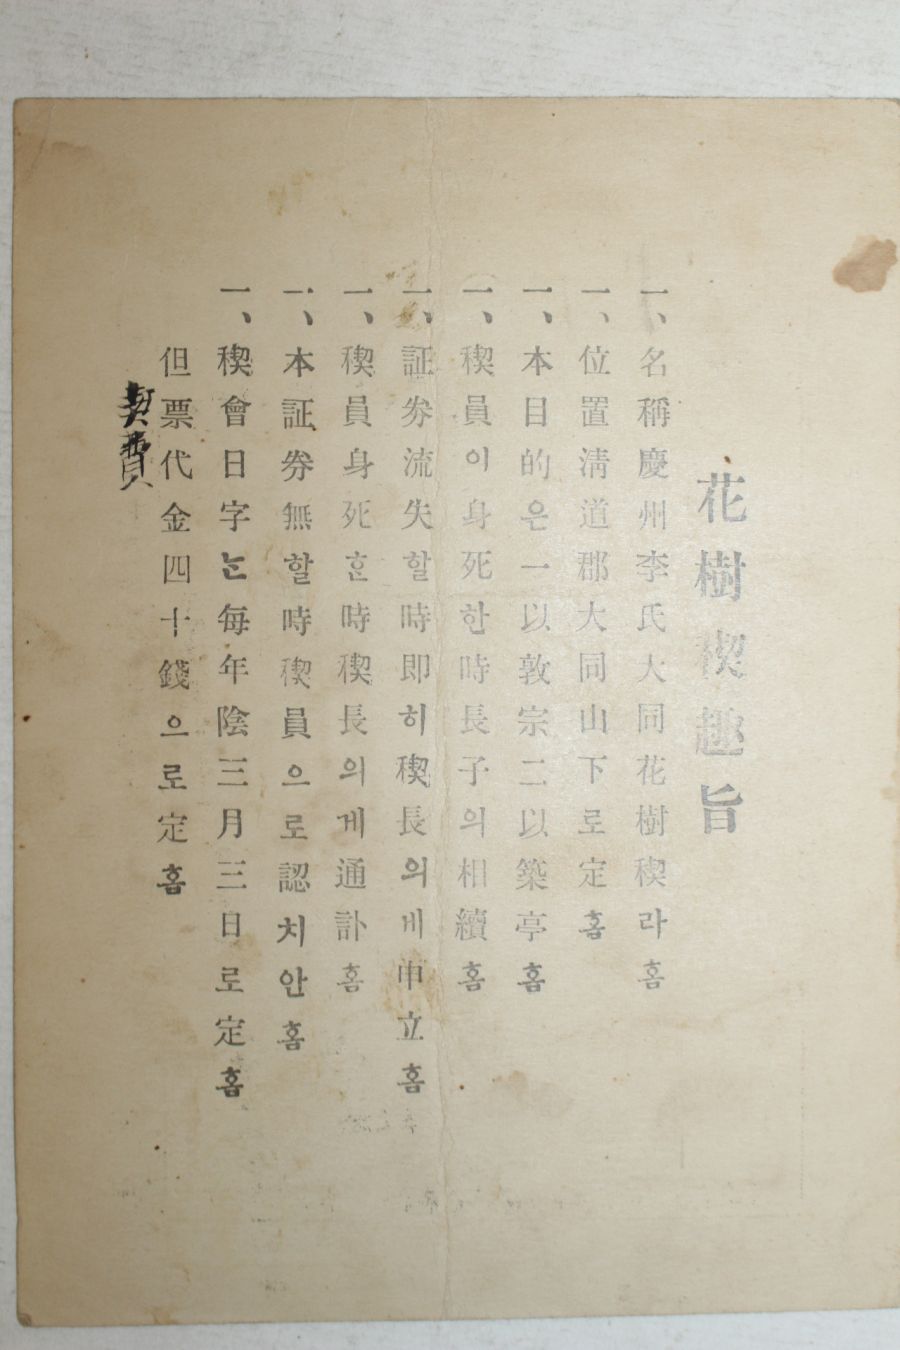 花樹稧趣旨
一、名稱慶州李氏大同花樹稧라홈
一、位置淸道郡大同山下로定홈
一、本目的은一以敦宗二以築亭홈
一、稧員이身死한時長子의相續홈
一、証劵流失할時即히稧長의게申立홈
一、稧員身死한時稧長의게通訃홈
一、本証劵無할時稧員으로認치안홈
一、稧會日字는每年陰三月三日로定홈
但票代金四十錢으로定홈
契費